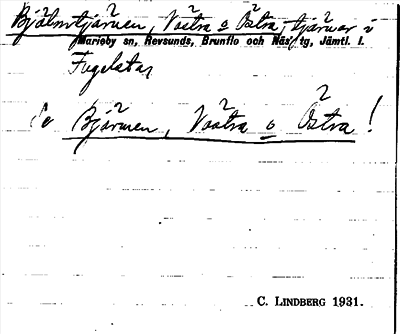 Bjälmtjärnen, Västra o Östra, tjärnar i
Marieby sn, Revsunds, Brunflo och Näs tg, Jämtl. l.
Fugelsta,
Se Bjärmen, Västra o Östra!
C. LINDBERG 1931.